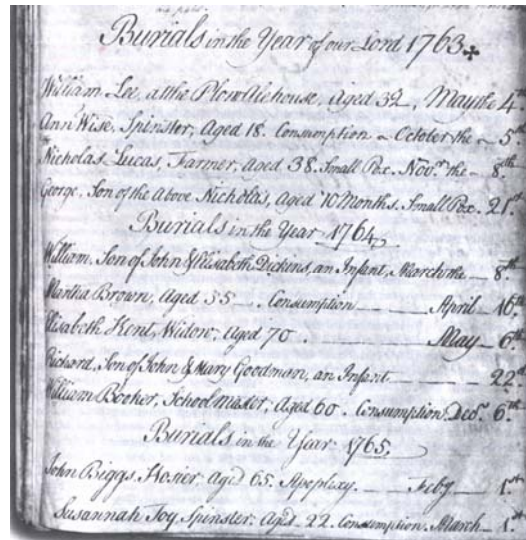 Burials in the Year of our Lord 1763
William Lee, at the Plow Alehouse, Aged 32, May the 4th
Ann Wise, Spinster, Aged 18. Consumption October the 5th
Nicholas Lucas, Farmer, aged 38. Small Pox. Novr. the 8th
George, Son of the above Nicholas, Aged 10 Months. Small Pox. 21st
Burials in the Year 1764
William, Son of John & Elisabeth Dickens, an Infant, March the 8th
Martha Brown, Aged 55 Consumption April 16th
Elisabeth Kent, Widow, Aged 70. May 6th
Richard, Son of John & Mary Goodman, an Infant 22d
William Booker, School master, Aged 60. Consumption, Decr. 6th
Burials in the Year 1765.
John Biggs, Hosier, aged 65. Apoplexy. Feby 1st
Susannah Joy, Spinster. Aged 22. Consumption. March 1st